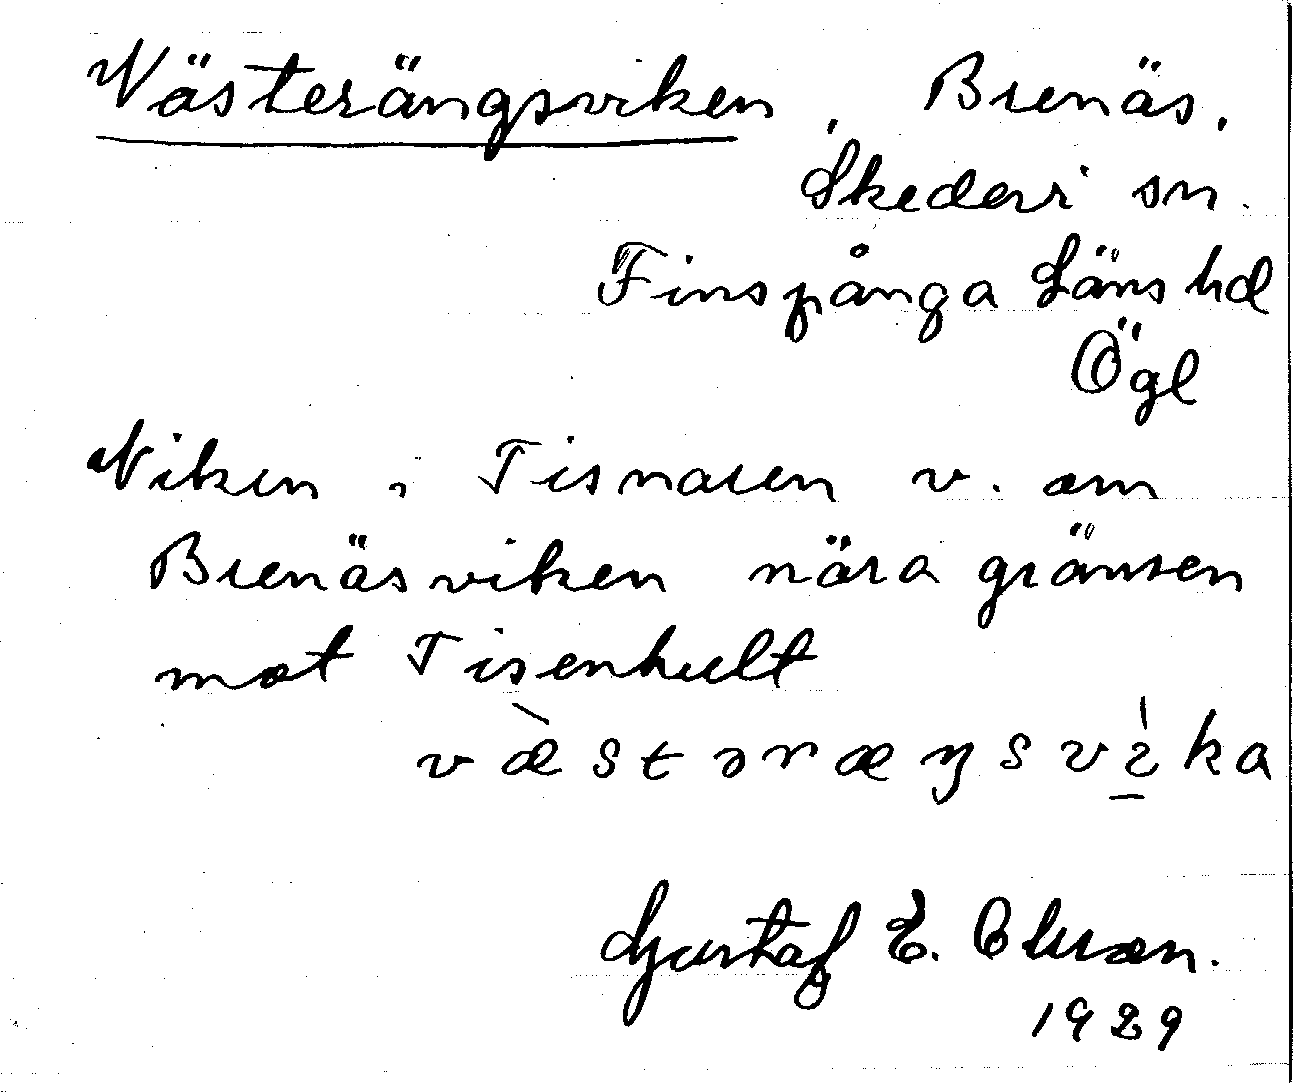 Västerängsviken, Brenäs,
Skedevi sn.
Finspånga Läns hd
Ögl
Viken i Tisnaren v. om
Brenäsviken nära gränsen
mot Tisenhult
væ̀stəræŋsvi̱̍ka
Gustaf E. Olsson.
1929